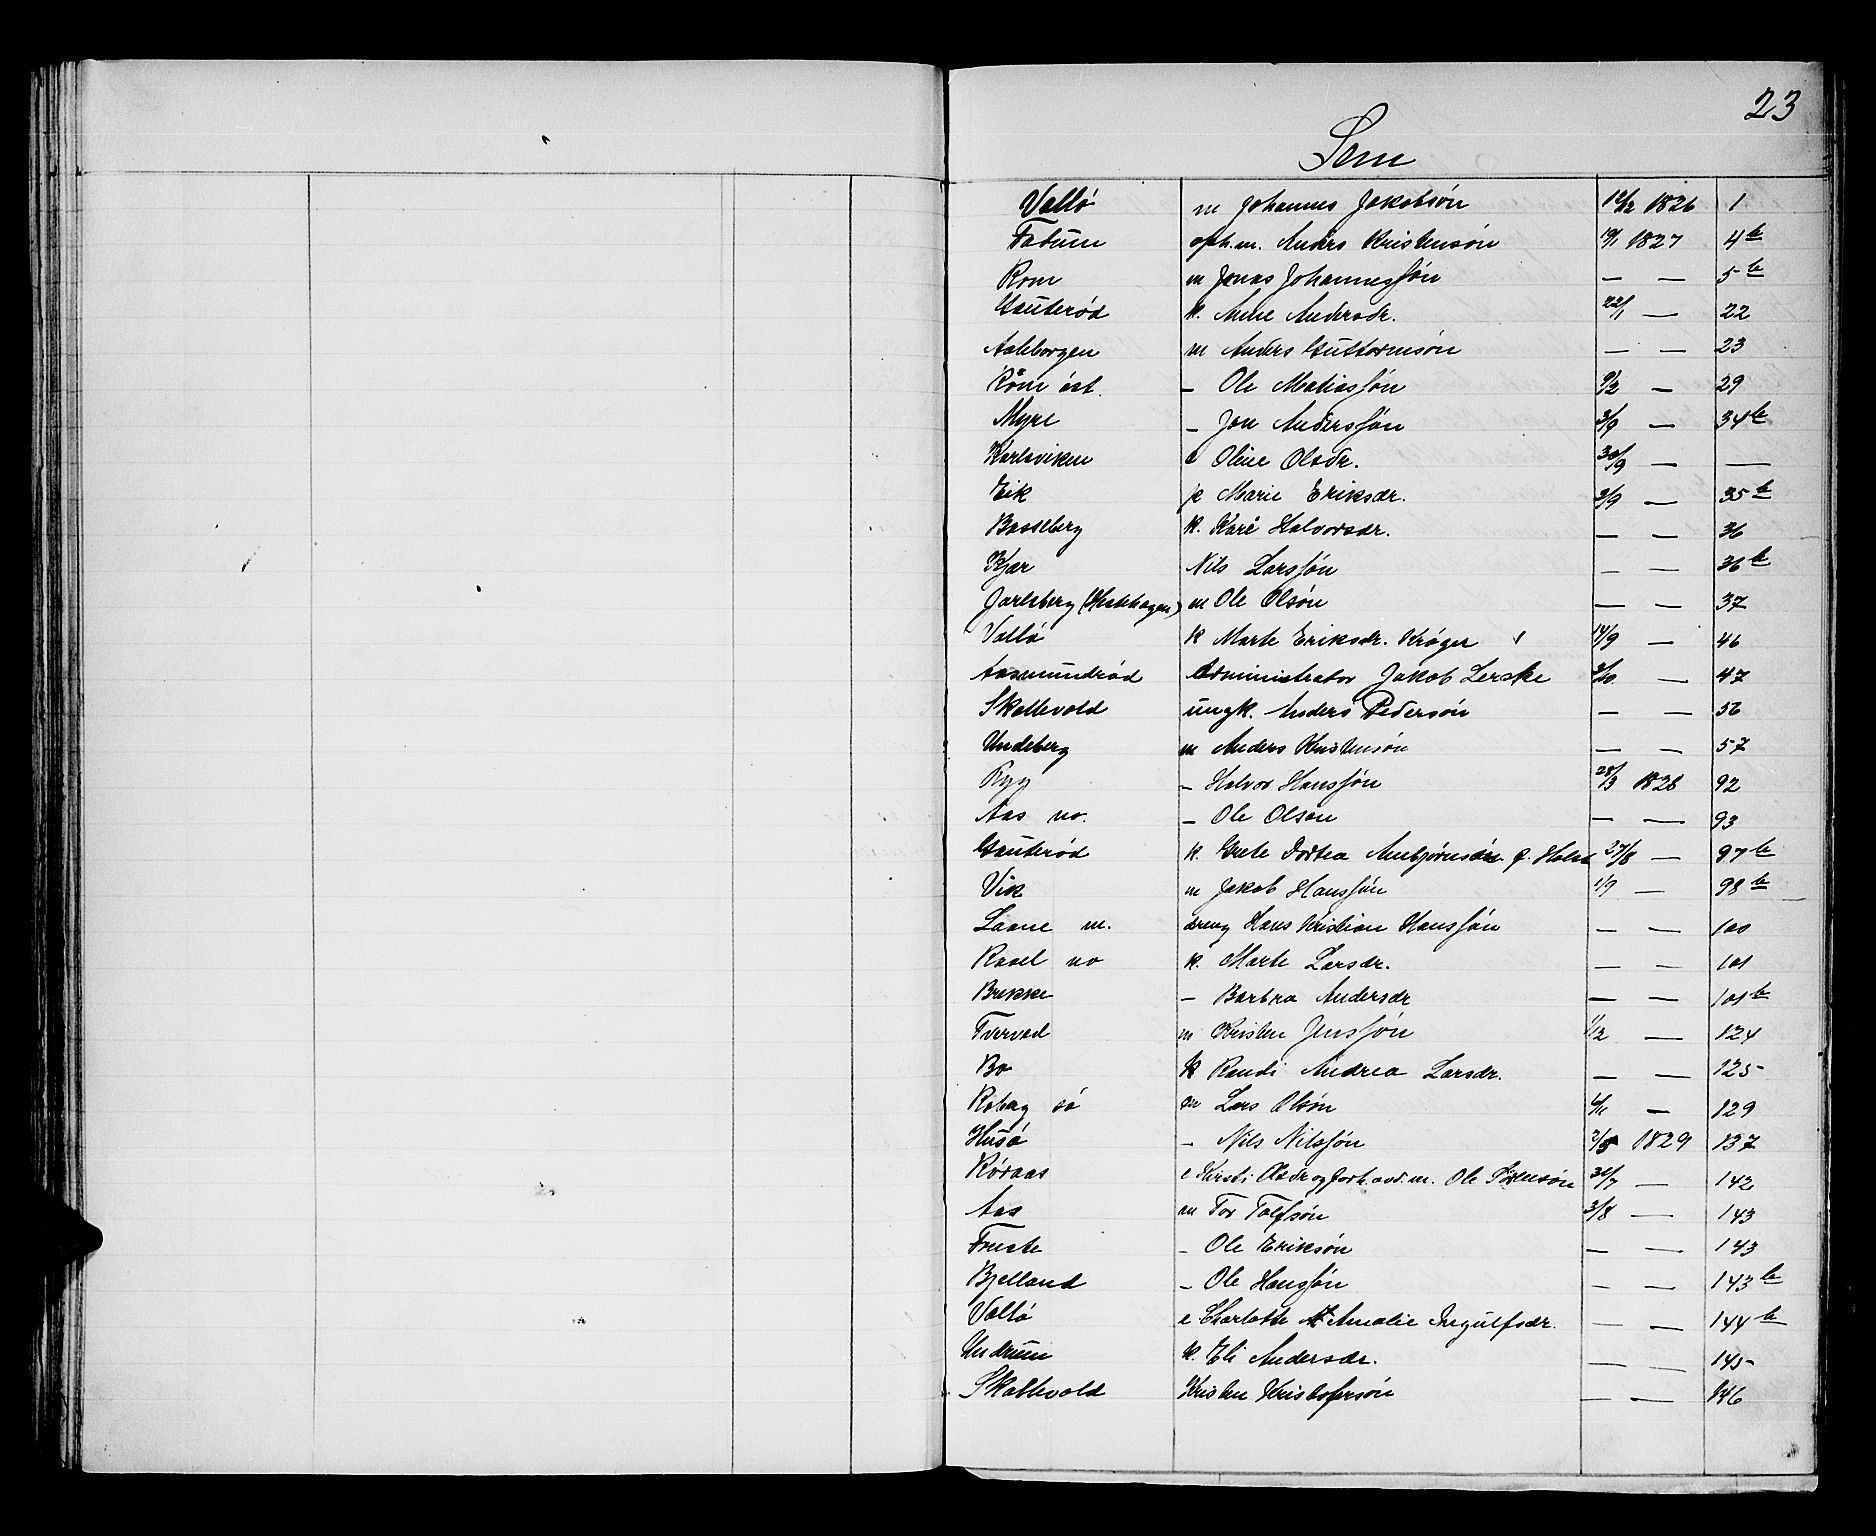 23
Sem
Valló m Johannes Jakobsón 12/12 1826 1
Fadum oph. m. Anders Kristensón 19/1 1827 4b
Rom m Jonas Johannessón — — 5b
Gauteród k. Anne Andersdr. 22/1 — 22
Aakeborgen m Anders Guttormsón — — 23
Róm óst. – Ole Matiassón 9/2 — 29
Myre – Jon Anderssón 3/9 — 34b
Karlsviken e Oline Olsdr. 30/9 — —
Eik p Marie Eriksdr. 3/9 — 35b
Basseberg k. Kari Halvorsdr. — — 36
Kjær Nils Larssón — — 36b
Jarlsberg m Ole Olsón — — 37
Valló k Marte Eriksdr. Króger 14/9 — 46
Aasmundród Administrator Jakob Lerske 3/10 — 47
Skallevold ungk. Anders Pedersón — — 56
Undeberg m Anders Kristensón — — 57
Ryg – Halvor Hanssón 28/3 1828 92
Aas no. – Ole Olson — — 93
Gauteród k. Grete Dortea f. Holst 27/8 — 97b
Vik m Jakob Hanssón 1/9 — 98b
Laane m. dreng Hans Kristian Hanssón — — 100
Rael no k. Marte Larsdr. — — 101
Brekke – Barbra Andersdr — — 101b
Tverved m Kristen Jenssón 1/12 — 124
Bo k Randi Andrea Larsdr. — — 125
Roberg só m Lars Olsón 6/11 — 129
Husó – Nils Nilssón 2/5 1829 137
Róraas e Kirsti Olsdr og forh. avd. m. Ole Sórensón 30/7 — 142
Aas m Tor Tolfsón 3/8 — 143
Freste – Ole Eriksón — — 143
Bjelland – Ole Hanssón — — 143b
Valló e Charlotte Amalie Ingulfsdr. — — 144b
Undrum k. Eli Andersdr. — — 145
Skallevold Kristen Kristofersón — — 146